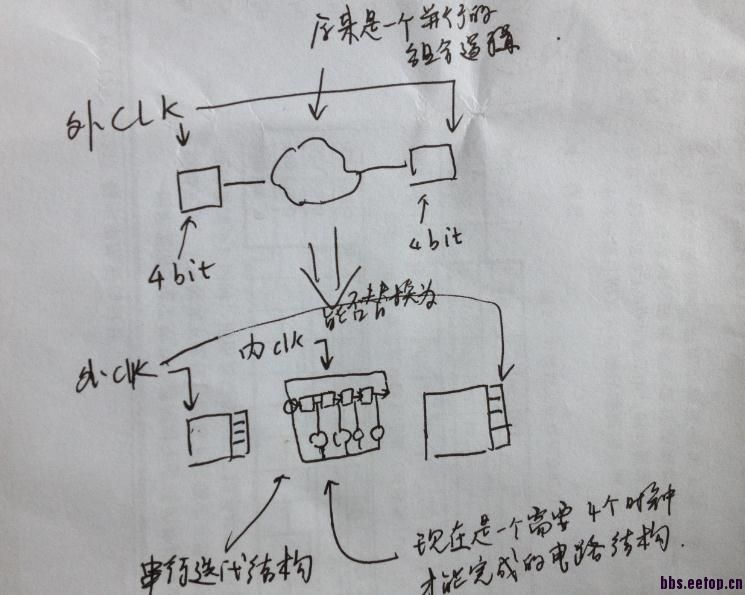 原来是一个并行的
组合逻辑
外CLK
4bit
4bit
能否替换为
内clk
外clk
串行迭代结构
现在是一个需要4个时钟
才能完成的电路结构.
bbs.eetop.cn